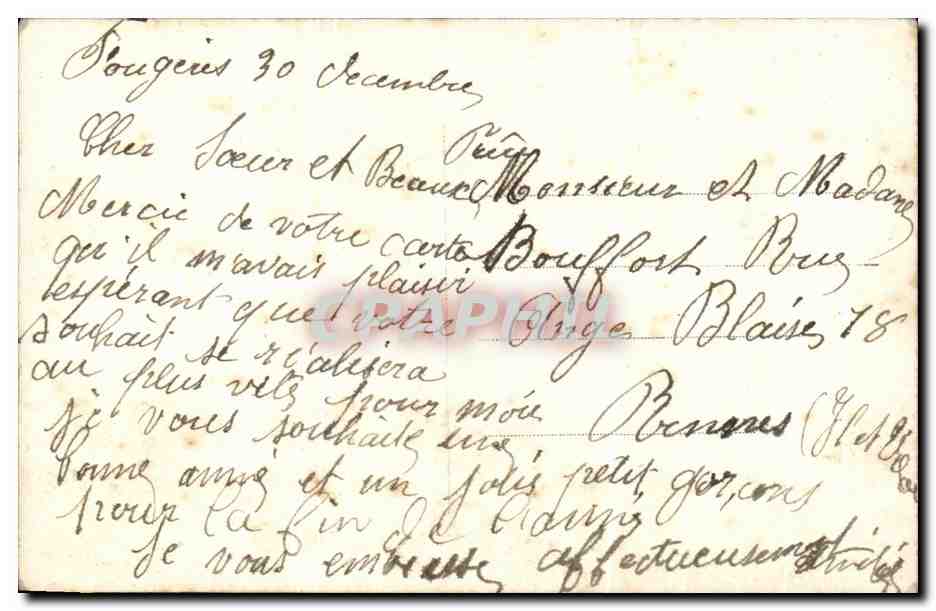 Fougères 30 decembre
Cher Sœur et Beaux Frère
Mercie de votre carte
qu'il m'avais plaisir
espérant que votre
souhait se réalisera
au plus vite pour moi
je vous souhaite une
bonne anné et un jolis petit garçons
pour la fin de l'anné
Je vous embrasse affectueusement
Monsieur et Madame
Bouffort Rue
Ange Blaise 18
Rennes (Il et Vil
CPAPHIL